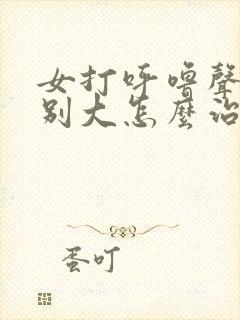 女打呼嚕聲
别大怎麼治
蛋叮